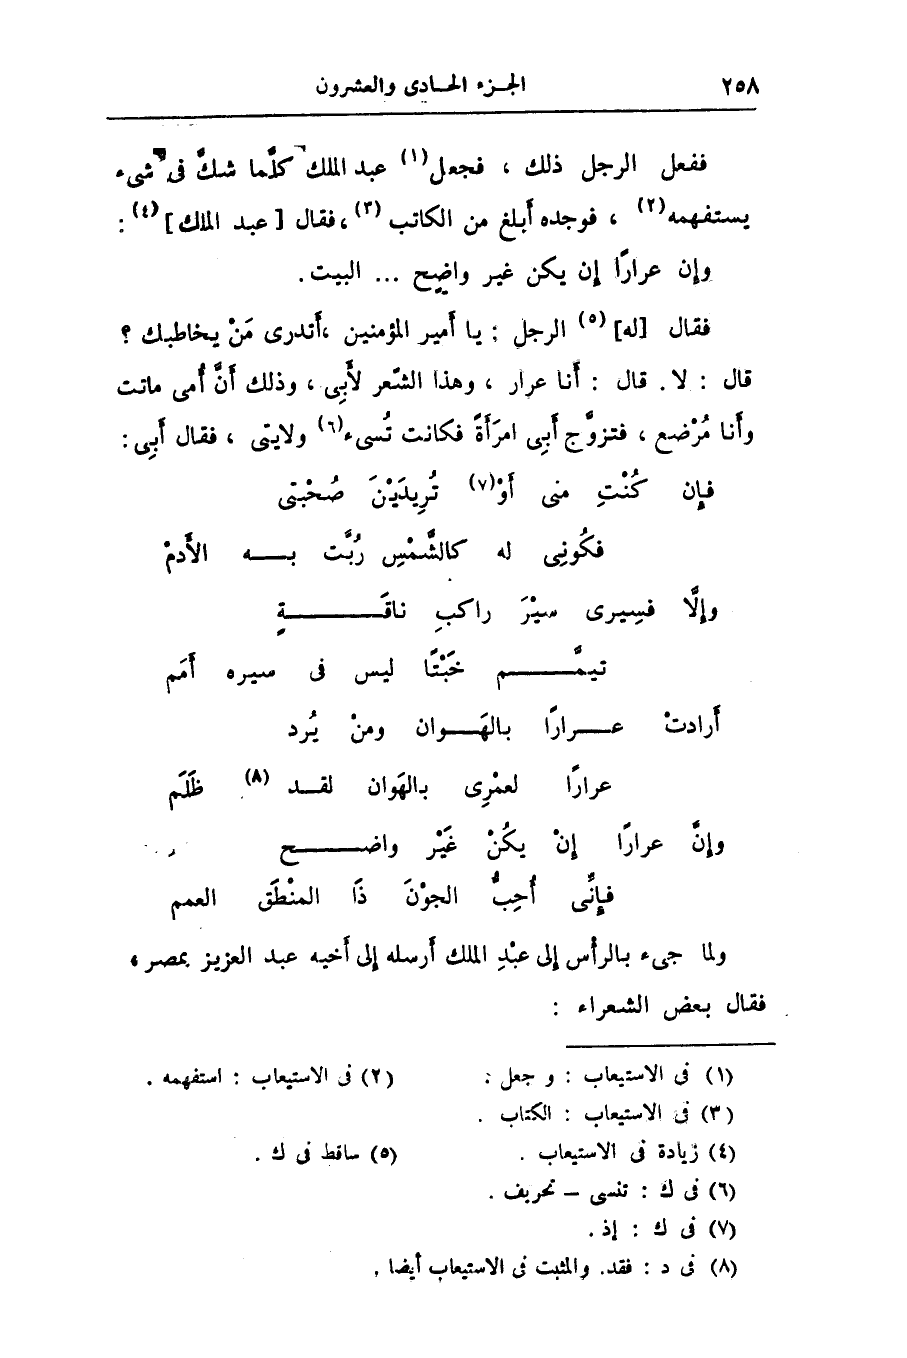 ٢٥٨ الجزء الحادى والعشرون
ففعل الرجل ذلك ، فجعل(١) عبد الملك كلَّما شكَّ فى شىء
يستفهمه(٢) ، فوجده أبلغ من الكاتب (٣) ، فقال [ عبد الملك ] (٤) :
وإن عرارًا إن يكن غير واضِح ... البيت .
فقال [له] (٥) الرجل : يا أمير المؤمنين ، أتدرى مَنْ يخاطبك ؟
قال : لا . قال : أنا عرار ، وهذا الشّعر لأَبِى ، وذلك أنَّ أُمى ماتت
وأنا مُرْضع ، فتزوَّج أبِى امرَأَةً فكانت تُسىء(٦) ولايتى ، فقال أبِى :
فإن كُنْتِ منى أوْ(٧) تُرِيدَيْنَ صُحْبتى
فكُونِى له كالشَّمْسِ رُبَّت بـــه الأَدمْ
وإلَّا فسِيرى سيْرَ راكبِ ناقَــــــةٍ
تيمَّــــــم خَبْتًا ليس فى سيره أَمَم
أرادتْ عـــرارًا بالهَــوان ومنْ يُرد
عرارًا لعمْرِى بالهَوان لقــد (٨) ظَلَم
وإنَّ عرارًا إنْ يكُنْ غَيْر واضــــــح
فإنِّى أُحِبُّ الجوْنَ ذَا المنْطَق العمم
ولما جىء بالرأْس إلى عبْدِ الملك أرسله إلى أخيه عبد العزيز بمصر ،
فقال بعض الشعراء :
(١) فى الاستيعاب : و جعل . (٢) فى الاستيعاب : استفهمه .
(٣) فى الاستيعاب : الكتاب .
(٤) زيادة فى الاستيعاب . (٥) ساقط فى ك .
(٦) فى ك : تنسى – تحريف .
(٧) فى ك : إذ .
(٨) فى د : فقد. والمثبت فى الاستيعاب أيضا .